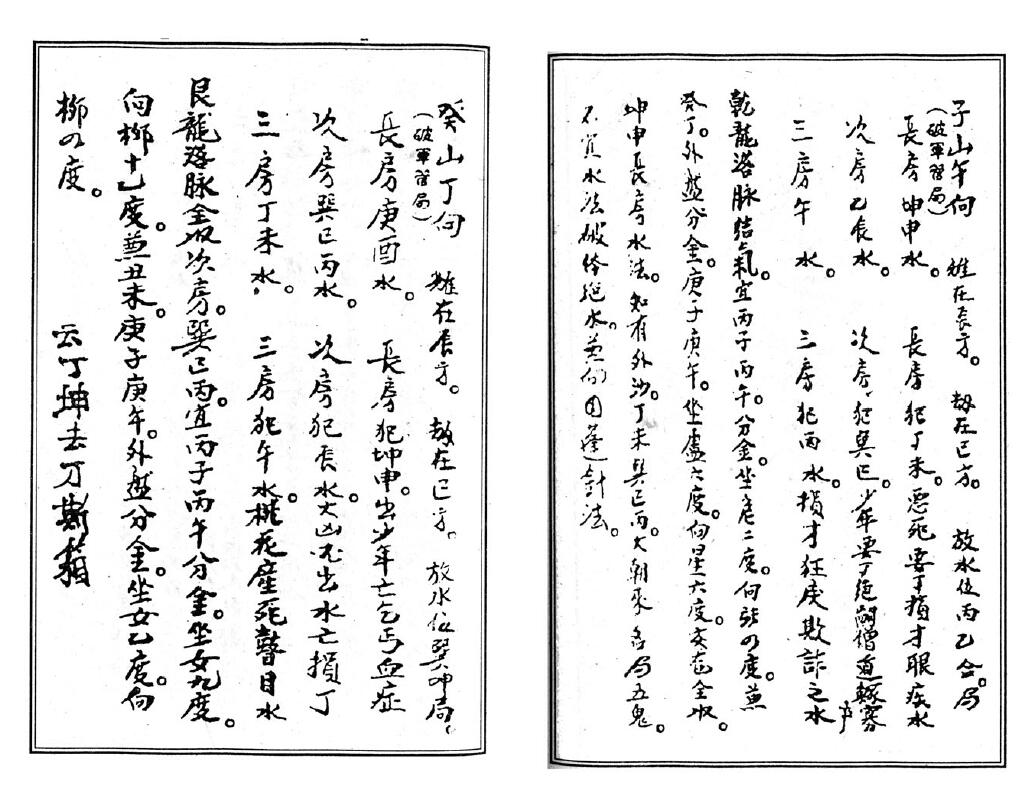 子山午向　煞在辰方。　劫在巳方。　放水位丙乙合局
（破軍管局）
長房坤申水。　長房犯丁未。惡死要丁損才眼疾水
次房乙辰水。　次房犯巽巳。少年要丁絕嗣僧道
三房午水。　三房犯丙水。損才狂戾欺詐之水
乾龍落脉結氣。宜丙子丙午分金。坐危二度。向張四度。兼
癸丁。外盤分金。庚子庚午。坐虛六度。向星六度。全收。
坤申長房水法。如有外沙。丁未巽巳丙。大朝來名局五鬼。
不宜水法破
癸山丁向　煞在辰方。　劫在巳方。　放水位巽坤局。
（破軍管局）
長房庚酉水。　長房犯坤申。出少年亡乞丐血症
次房巽巳丙水。　次房犯辰水。大凶出水亡損丁
三房丁未水。　三房犯午水。桃花產死瞽目水
艮龍落脉全收次房。巽巳丙。宜丙子丙午分金。坐女九度。
向柳十七度。兼丑未。庚子庚午。外盤分金。坐女七度。向
柳四度。　云丁坤去丁斯